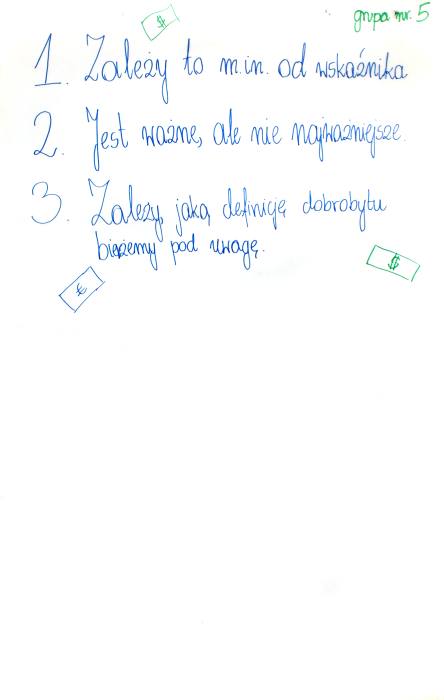 $
grupa nr. 5
1. Zależy to m.in. od wskaźnika
2. Jest ważne, ale nie najważniejsze.
3. Zależy, jaką definicję dobrobytu
bierzemy pod uwagę.
$
€